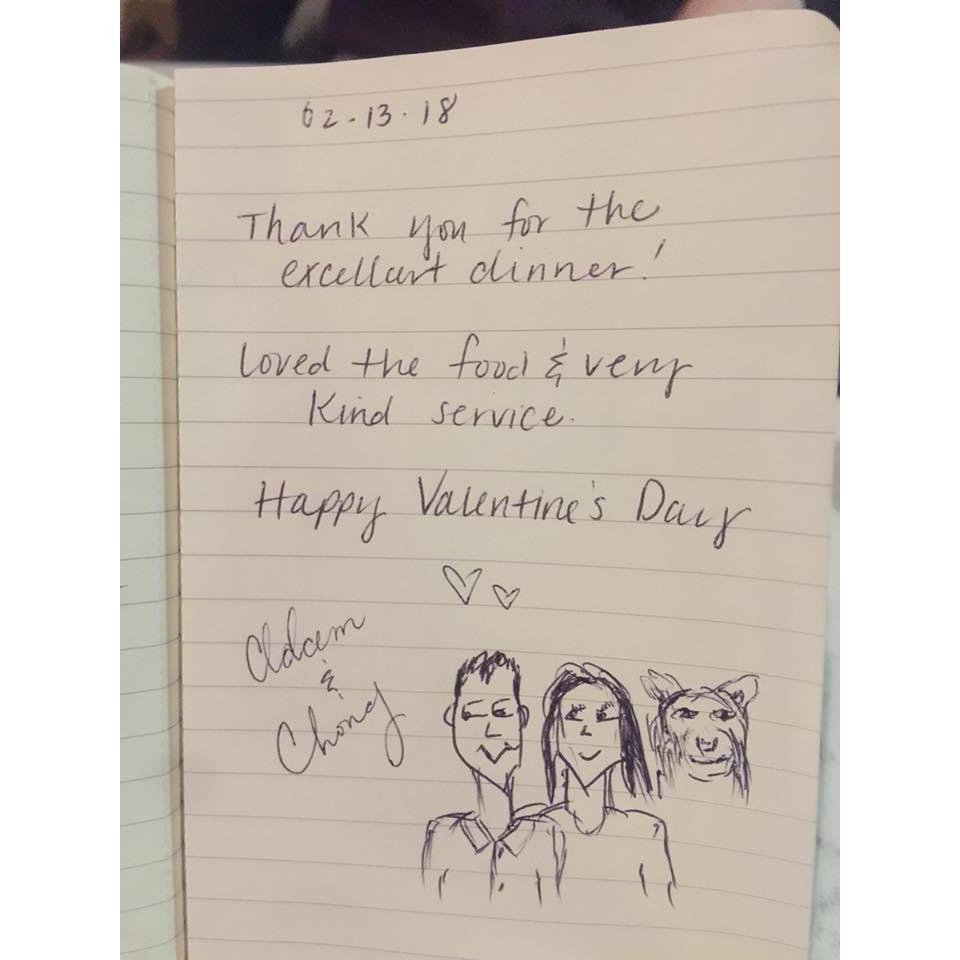 02-13-18
Thank you for the
excellent dinner!
Loved the food & very
kind service.
Happy Valentine's Day
Adam
&
Chong